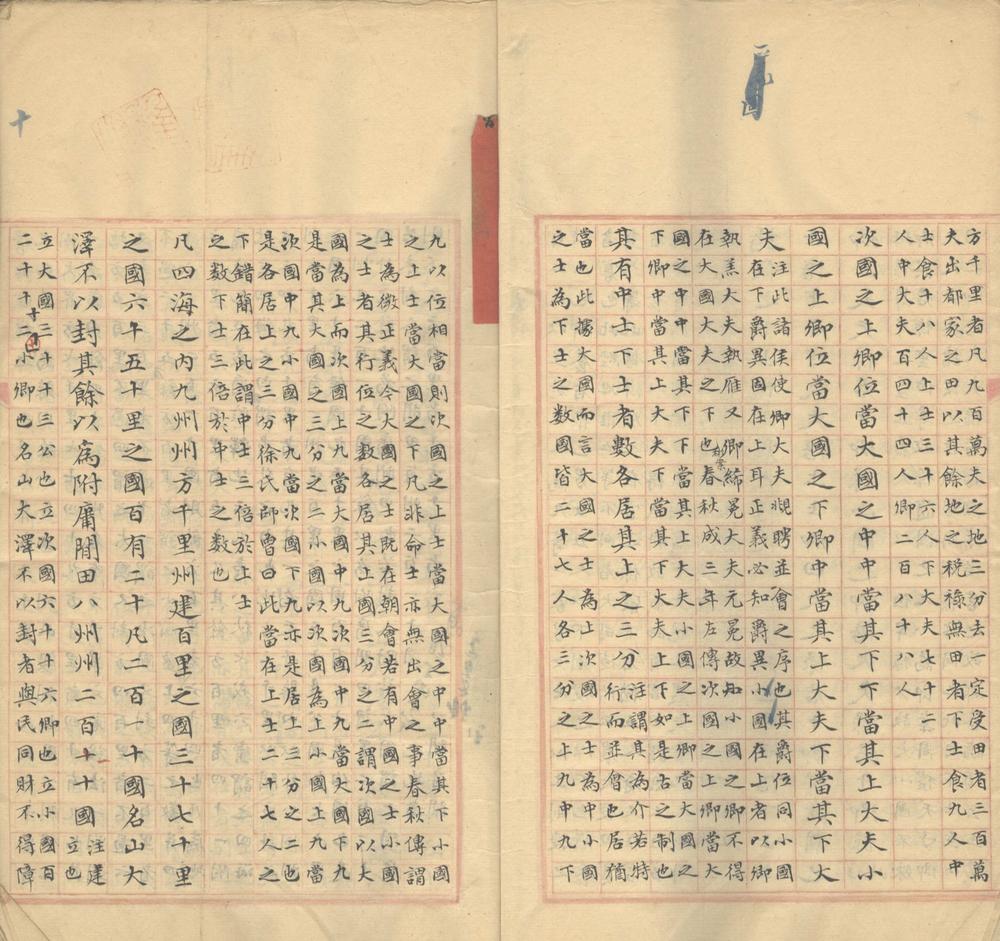 方千里者凡九百萬夫之地三分去一定受田者三百萬
夫出都家之田以其餘地之税祿無田者下士食九人中
士食十八人上士三十六人下大夫七十二
人中大夫百四十四人卿二百八十八人
次國之上卿位當大國之中中當其下下當其上大夫小
國之上卿位當大國之下卿中當其上大夫下當其下大
夫
注此諸侯使卿大夫覜聘並會之序也其爵位同小國
在下爵異固在上耳正義必知爵異小國在上者以卿
執羔大夫執雁又卿絺冕大夫元冕故知小國之卿不得
在大國大夫之下也春秋成三年左傳次國之上卿當大
國之中中當其下下當其上大夫小國之上卿當大國之
下卿中當其上大夫下當其下大夫上下如是古之制也
其有中士下士者數各居其上之三分
注謂其為介若特
行而並會也居猶
當也此據大國而言大國之士為上次國之士為中小國
之士為下士之數國皆二十七人各三分之上九中九下
九以位相當則次國之上士當大國之中中當其下小國
之上士當大國之下凡非命士亦無出會之事春秋傳謂
士為微正義令大國之士既在朝會若有中國之士小國
之士者其行位之數各居其上國三分之二謂次國以大
國為上而次國上九當大國中九次國中九當大國下九
是當其大國之三分之二小國以次國為上小國上九當
次國中九小國中九當次國下九亦是居上三分之二也
是各居上之三分徐氏師曾曰此當在上士二十七人之
下錯簡在此謂中士三倍於上士
之數下士三倍於中士之數也
凡四海之內九州州方千里州建百里之國三十七十里
之國六十五十里之國百有二十凡二百一十國名山大
澤不以封其餘以為附庸閒田八州州二百一十國
注建
立也
立大國三十十三公也立次國六十十六卿也立小國百
二十十二小卿也名山大澤不以封者與民同財不得障
十